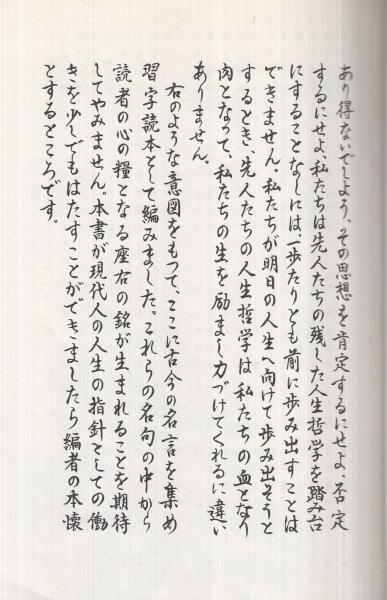 あり得ないでしよう、その思想を肯定するにせよ、否定
するにせよ、私たちは先人たちの残した人生哲学を踏み台
にすることなしには、一歩たりとも前に歩み出すことは
できません。私たちが明日の人生へ向けて歩み出そうと
するとき、先人たちの人生哲学は私たちの血となり
肉となって、私たちの生を励まし力づけてくれるに違い
ありません。
右のような意図をもつて、ここに古今の名言を集め
習字読本として編みました。これらの名句の中から
読者の心の糧となる座右の銘が生まれることを期待
してやみません。本書が現代人の人生の指針としての働
きを少しでもはたすことができましたら編者の本懐
とするところです。